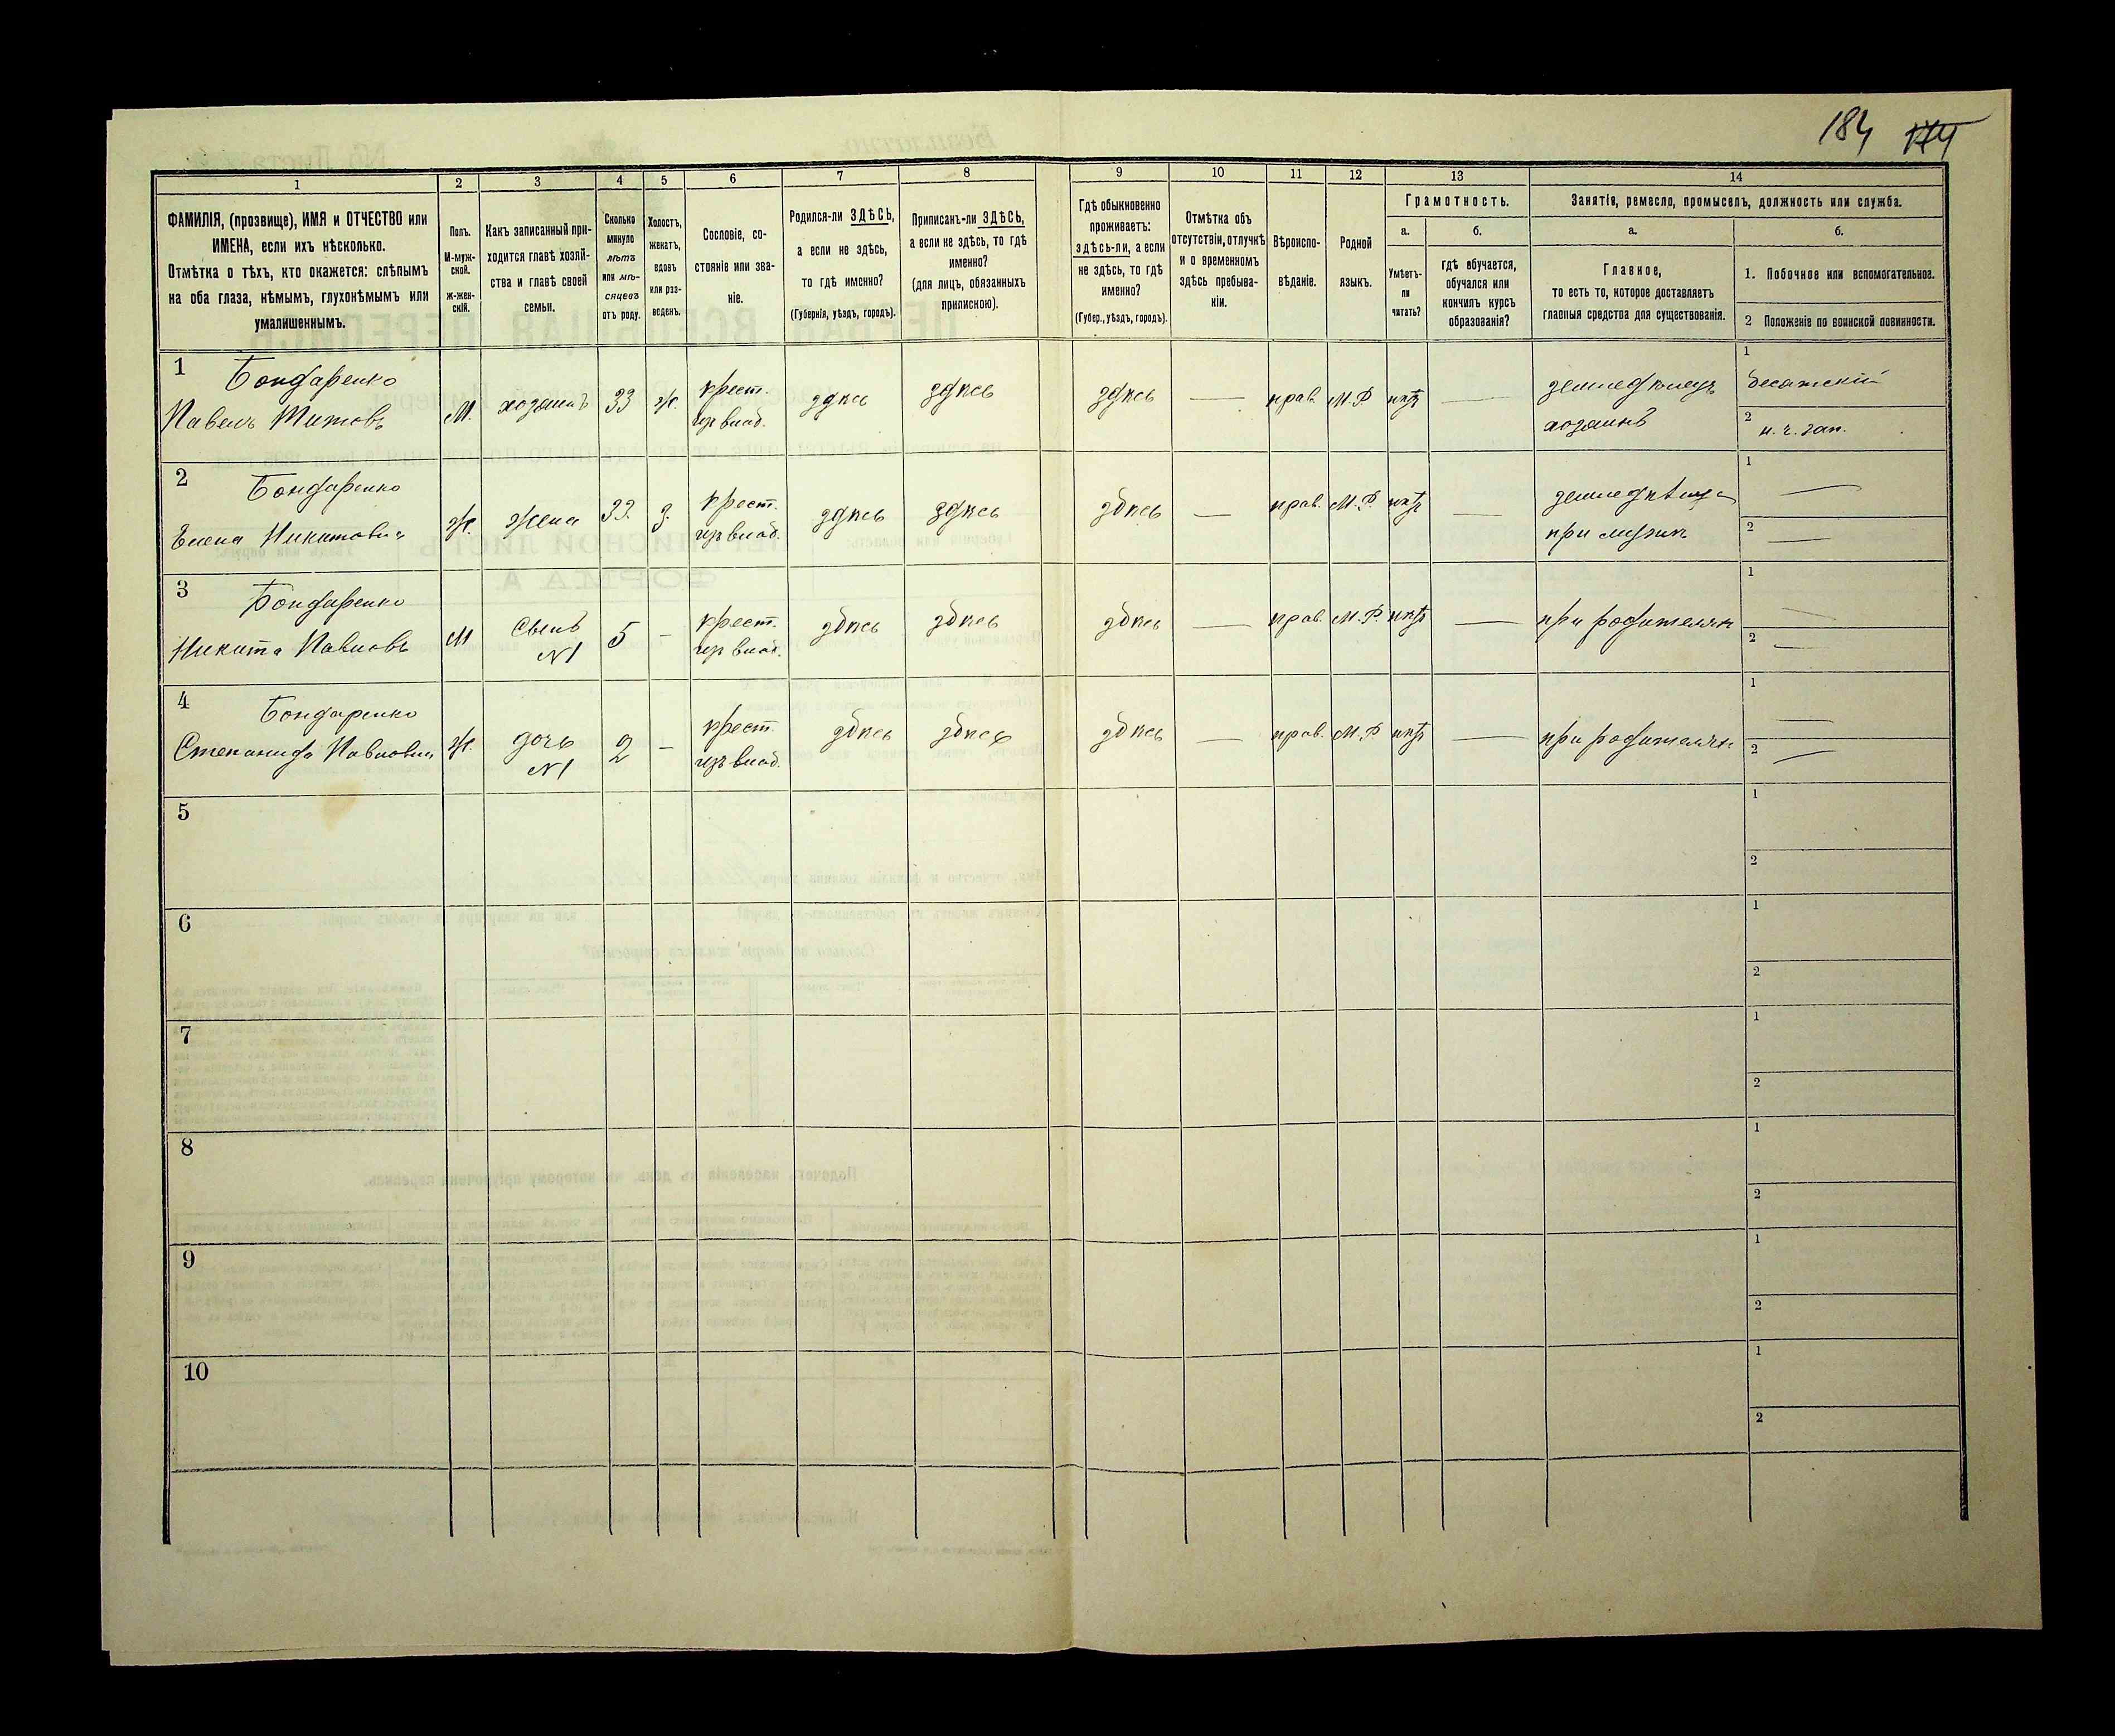 184 174
1
2
3
4
5
6
7
8
9
10
11
12
13
14
ФАМИЛІЯ, (прозвище), ИМЯ и ОТЧЕСТВО или
ИМЕНА, если ихъ нѣсколько.
Отмѣтка о тѣхъ, кто окажется: слѣпымъ
на оба глаза, нѣмымъ, глухонѣмымъ или
умалишеннымъ.
Полъ.
М-муж-
ской.
Ж-жен-
скій.
Какъ записанный при-
ходится главѣ хозяй-
ства и главѣ своей
семьи.
Сколько
минуло
лѣтъ
или мѣ-
сяцевъ
отъ роду.
Холостъ,
женатъ,
вдовъ
или раз-
веденъ.
Сословіе, со-
стояніе или зва-
ніе.
Родился-ли ЗДѢСЬ,
а если не здѣсь,
то гдѣ именно?
(Губернія, уѣздъ, городъ).
Приписанъ-ли ЗДѢСЬ,
а если не здѣсь, то гдѣ
именно?
(для лицъ, обязанныхъ
припискою).
Гдѣ обыкновенно
проживаетъ:
здѣсь-ли, а если
не здѣсь, то гдѣ
именно?
(Губер., уѣздъ, городъ).
Отмѣтка объ
отсутствіи, отлучкѣ
и о временномъ
здѣсь пребыва-
ніи.
Вѣроиспо-
вѣданіе.
Родной
языкъ.
Грамотность.
а.
Умѣетъ-
ли
читать?
б.
гдѣ обучается,
обучался или
кончилъ курсъ
образованія?
Занятія, ремесло, промыселъ, должность или служба.
а.
Главное,
то есть то, которое доставляетъ
главныя средства для существованія.
б.
1. Побочное или вспомогательное.
2 Положеніе по воинской повинности.
1
Бондаренко
Павелъ Титовъ
М.
хозяинъ
33
ж.
крест.
изъ влад.
здѣсь
здѣсь
здѣсь
—
прав.
М.Р.
нѣтъ
—
земледѣлецъ
хозяинъ
1
2
н. ч. зап.
2
Бондаренко
Елена Никитовна
Ж.
жена
33.
з.
крест.
изъ влад.
здѣсь
здѣсь
здѣсь
—
прав.
М.Р.
нѣтъ
—
при мужѣ
1
—
2
—
3
Бондаренко
Никита Павловъ
М
сынъ
№1
5
—
крест.
изъ влад.
здѣсь
здѣсь
здѣсь
—
прав.
М.Р.
нѣтъ
—
при родителяхъ
1
—
2
—
4
Бондаренко
Степанида Павловна
Ж.
дочь
№1
2
—
крест.
изъ влад.
здѣсь
здѣсь
здѣсь
—
прав.
М.Р
нѣтъ
—
при родителяхъ
1
—
2
—
5
1
2
6
1
2
7
1
2
8
1
2
9
1
2
10
1
2